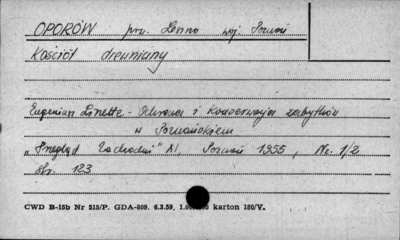 OPORÓW pow. Leszno woj. Poznań
Kościół drewniany
Eugeniusz Linette - Ochrona i konserwacja zabytków
w Poznańskiem
„Przegląd Zachodni" XI, Poznań 1955, Nr. 1/2
str. 123
CWD B-15b Nr 515/P. GDA-809. 6.3.59, karton 180/V.